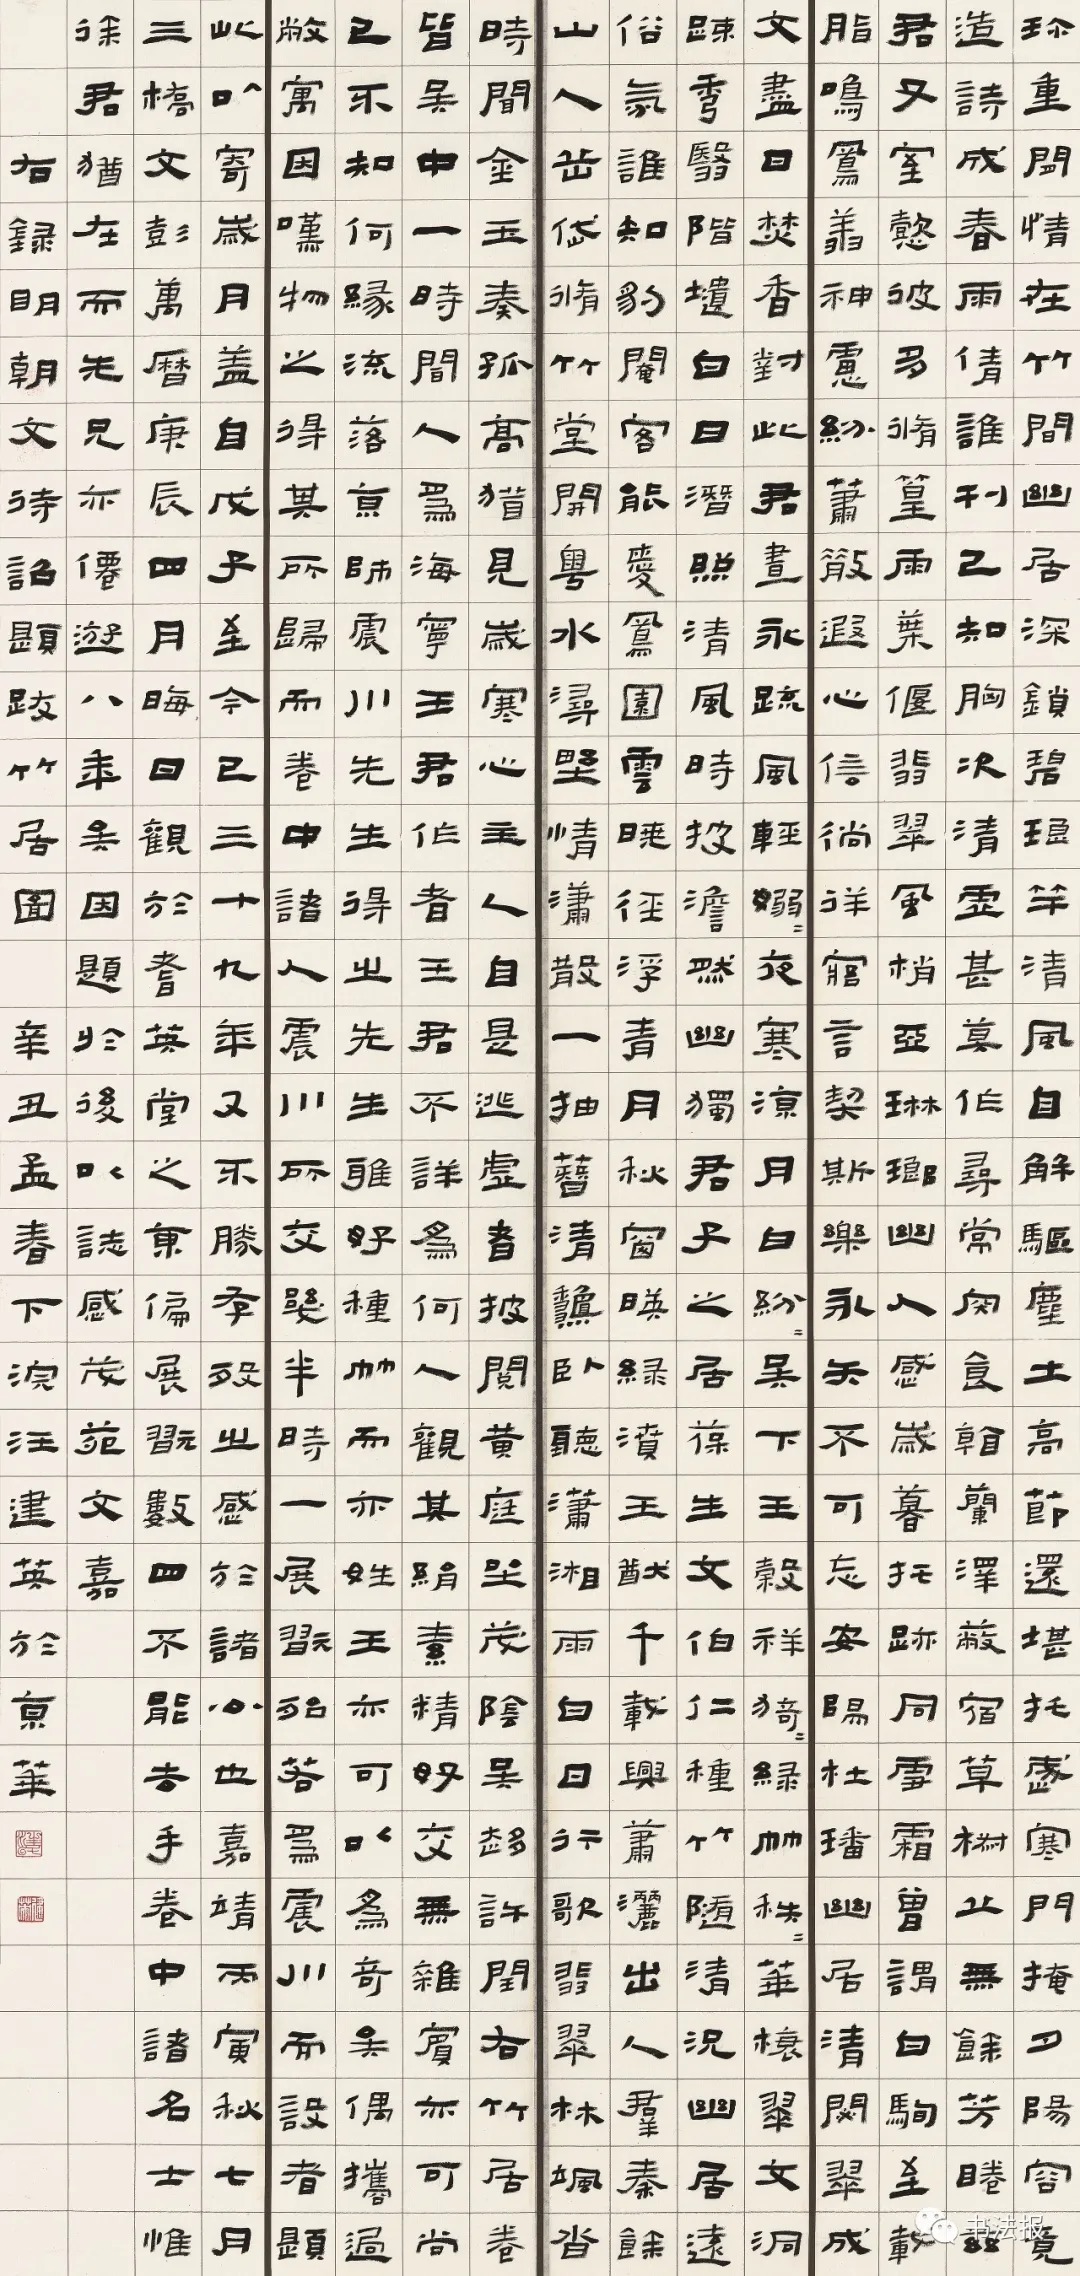 珎重閒情在竹間幽居深鎖碧琅竿清風自解驅塵土高節還堪托歲寒門掩夕陽容覓
造詩成春雨倩誰刊已知胸次清虛甚莫作尋常肉食翰蘭澤蔽宿草樹止無餘芳睠
君又室懿彼多脩篁雨葉偃翡翠風梢亞琳瑯幽人感歲暮托跡同雪霜曾謂白駒至載
脂鳴鳳羕神慮紛蕭散遐心信徜徉寤言契斯樂永矢不可忘安陽杜璠幽居清閟翠成
文盡日焚香對此君晝永疏風輕嫋〻夜寒涼月白紛〻吳下王穀祥猗〻綠竹秩〻華榱翠文洞
踈秀翳階壝白日潛照清風時披澹然幽獨君子之居葆生文伯仁種竹隨清況幽居遠
俗氛誰知豹闇客能愛鳳園雲暎徑浮青月秋窗暎綠濆王猷千載興蕭灑出人群秦餘
山人岳岱脩竹堂開粵水潯野情瀟散一抽簪清飇臥聽瀟湘雨白日行歌翡翠林颯沓
時聞金玉奏孤高猶見歲寒心主人自是逃虛者披閱黃庭坐茂陰吳趨許閏右竹居卷
皆吳中一時聞人為海寧王君作者王君不詳為何人觀其絹素精好交無雜賓亦可尚
已不知何緣流落京師震川先生得之先生雅好種竹而亦姓王亦可以為奇矣偶攜過
敝寓因嘆物之得其所歸而卷中諸人震川所交幾半時一展玩殆若為震川而設者題
此以寄歲月蓋自戊子至今已三十九年又不勝存歿之感於諸公也嘉靖丙寅秋七月
三橋文彭萬曆庚辰四月晦日觀於耆英堂之東偏展玩數四不能去手卷中諸名士惟
徐君猶在而先兄亦僊遊八年矣因題於後以誌感茂苑文嘉
右錄明朝文待詔題跋竹居圖 辛丑孟春下浣汪建英於京華
书法报